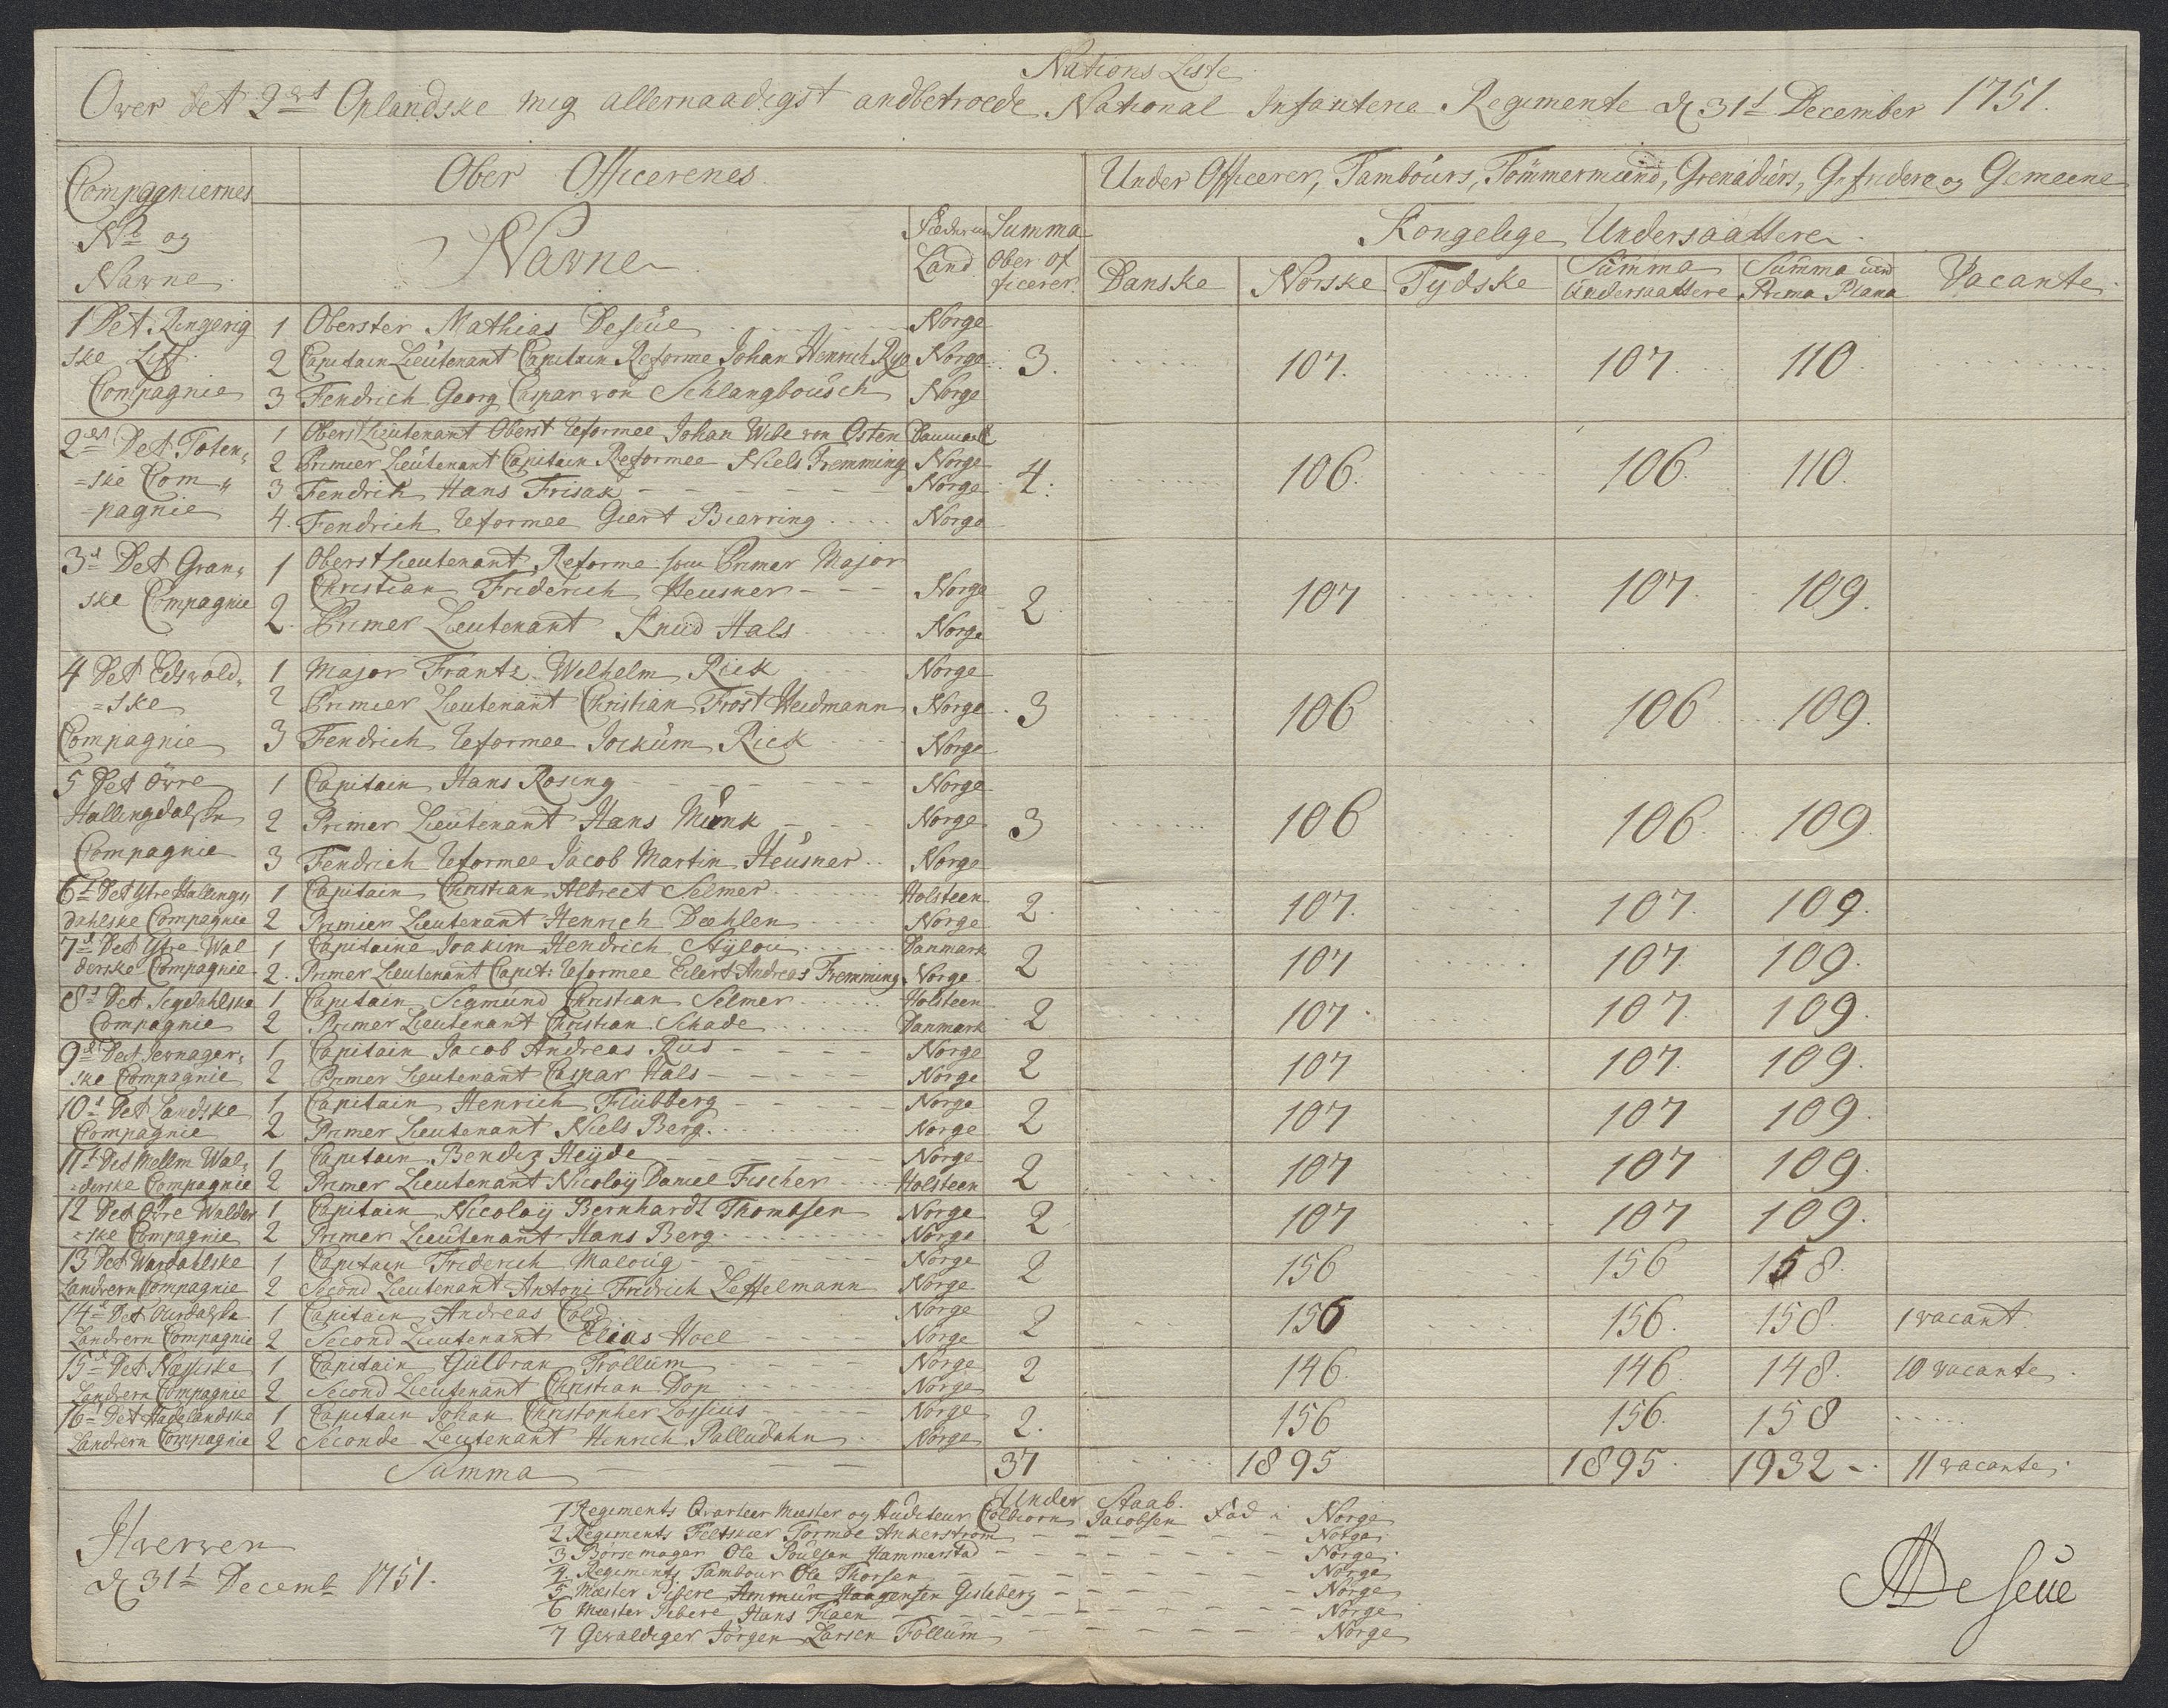 Nations Liste
Over det 2det Oplandske mig allernaadigst andbetroede National Infanterie Regimente d. 31t December 1751.
Compagniernes No og Navne
Ober Officerenes
Under Officerer, Tambours, Tömmermænd, Grenadiers, Gefridere og Gemeene
Navne
Land
Summa Ober officerer
Kongelige Undersaattere
Danske Norske Tydske Summa Undersaattere Summa Prima Plana Vacante
1 Det Ringerigske Liff Compagnie
1 Oberster Mathias DeSeue Norge
2 Capitain Lieutenant Capitain Reforme Johan Henrich Rye Norge
3 Fendrich Georg Caspar von Schlangbousch Norge
3. 107. 107. 110.
2det Det Toten=ske Com=pagnie
1 Oberst Lieutenant Oberst Reformee Johan Wibe von Osten Danmark
2 Premier Lieutenant Capitain Reformee Niels Fremming Norge
3 Fendrik Hans Frisak Norge
4. Fendrich Reformee Giert Bierring Norge
4. 106. 106. 110.
3d Det Granske Compagnie
1 Oberst Lieutenant Reforme som Primer Major
Christian Friderich Heusner Norge
2. Primer Lieutenant Knud Hals Norge
2 107 107. 109.
4 Det Edsvold=ske Compagnie
1 Major Frantz Wilhelm Rick Norge
2 Primier Lieutenant Christian Frost Weidmann Norge
3 Fendrich Reformee Jockum Rick Norge
3 106 106 109.
5 Det Övre Hallingdalske Compagnie
1 Capitain Hans Rosing Norge
2 Primer Lieutenant Hans Münk Norge
3 Fendrich Reformee Jacob Martin Heusner Norge
3 106 106. 109
6t Det Ytre Hallingdahlske Compagnie
1 Capitain Christian Albrect Selmer Holsteen
2 Primier Lieutenant Henrich Dæhlen Norge
2. 107. 107. 109.
7d Det Ytre Walderske Compagnie
1 Capitaine Joakim Hendrich Nylou Danmark
2. Primer Lieutenant Capit: Reformee Eilert Andreas Fremming Norge
2 107 107 109.
8d Det Sigdahlske Compagnie
1 Capitain Segmund Christian Selmer Holsteen
2 Primer Lieutenant Christian Schade Danmark
2 107 107. 109.
9d Det Jevnager=ske Compagnie
1 Capitain Jacob Andreas Riis Norge
2 Primer Lieutenant Caspar Hals Norge
2 107 107. 109.
10d Det Landske Compagnie
1 Capitain Henrich Flubberg Norge
2 Primer Lieutenant Niels Berg. Norge
2 107 107 109.
11t Det Mellm Wal=derske Compagnie
1 Capitain Bendix Heyde Norge
2 Primer Lieutenant Nicolaij Daniel Fischer Holsteen
2 107 107 109.
12 Det Övre Walder=ske Compagnie
1 Capitain Nicolaij Bernhardt Thombsen Norge
2 Primer Lieutenant Hans Berg Norge
2 107 107 109.
13 Det Wardahlske Landvern Compagnie
1 Capitain Friderich Maloug Norge
2 Second Lieutenant Antoni Fridrich Leffelmann Norge
2 156 156 158.
14d Det Ourdalske Landvern Compagnie
1 Capitain Andreas Cold Norge
2 Second Lieutenant Elias Hoel Norge
2 156 156. 158. 1 vacant
15d Det Næssiske Landvern Compagnie
1 Capitain Gulbran Trollum Norge
2 Second Lieutenant Christian Dop Norge
2 146. 146. 148. 10 vacante.
16d Det Hadelandske Landvern Compagnie
1 Capitain Johan Christopher Lossius Norge
2 Seconde Leutenant Hinrich Palludahn Norge
2. 156 156. 158
Summa 37 1895 1895. 1932 11 vacante.
Under Staab.
1 Regiments Qvarteer Mester og Auditeur Colbiorn Jacobsen Fød i Norge
2 Regiments Feltskier Tormoe Ankerstrøm Norge
3 Börsemager Ole Poulsen Hammerstad Norge
4 Regiments Tambour Ole Thorsen Norge
5 Mæster Pibere Ammun Haagensen Gisleberg Norge
6 Mæster Pibere Hans Flaen Norge
7 Gevaldiger Jörgen Larsen Follum Norge
Hverven
d. 31t Decemb: 1751.
MDeSeue